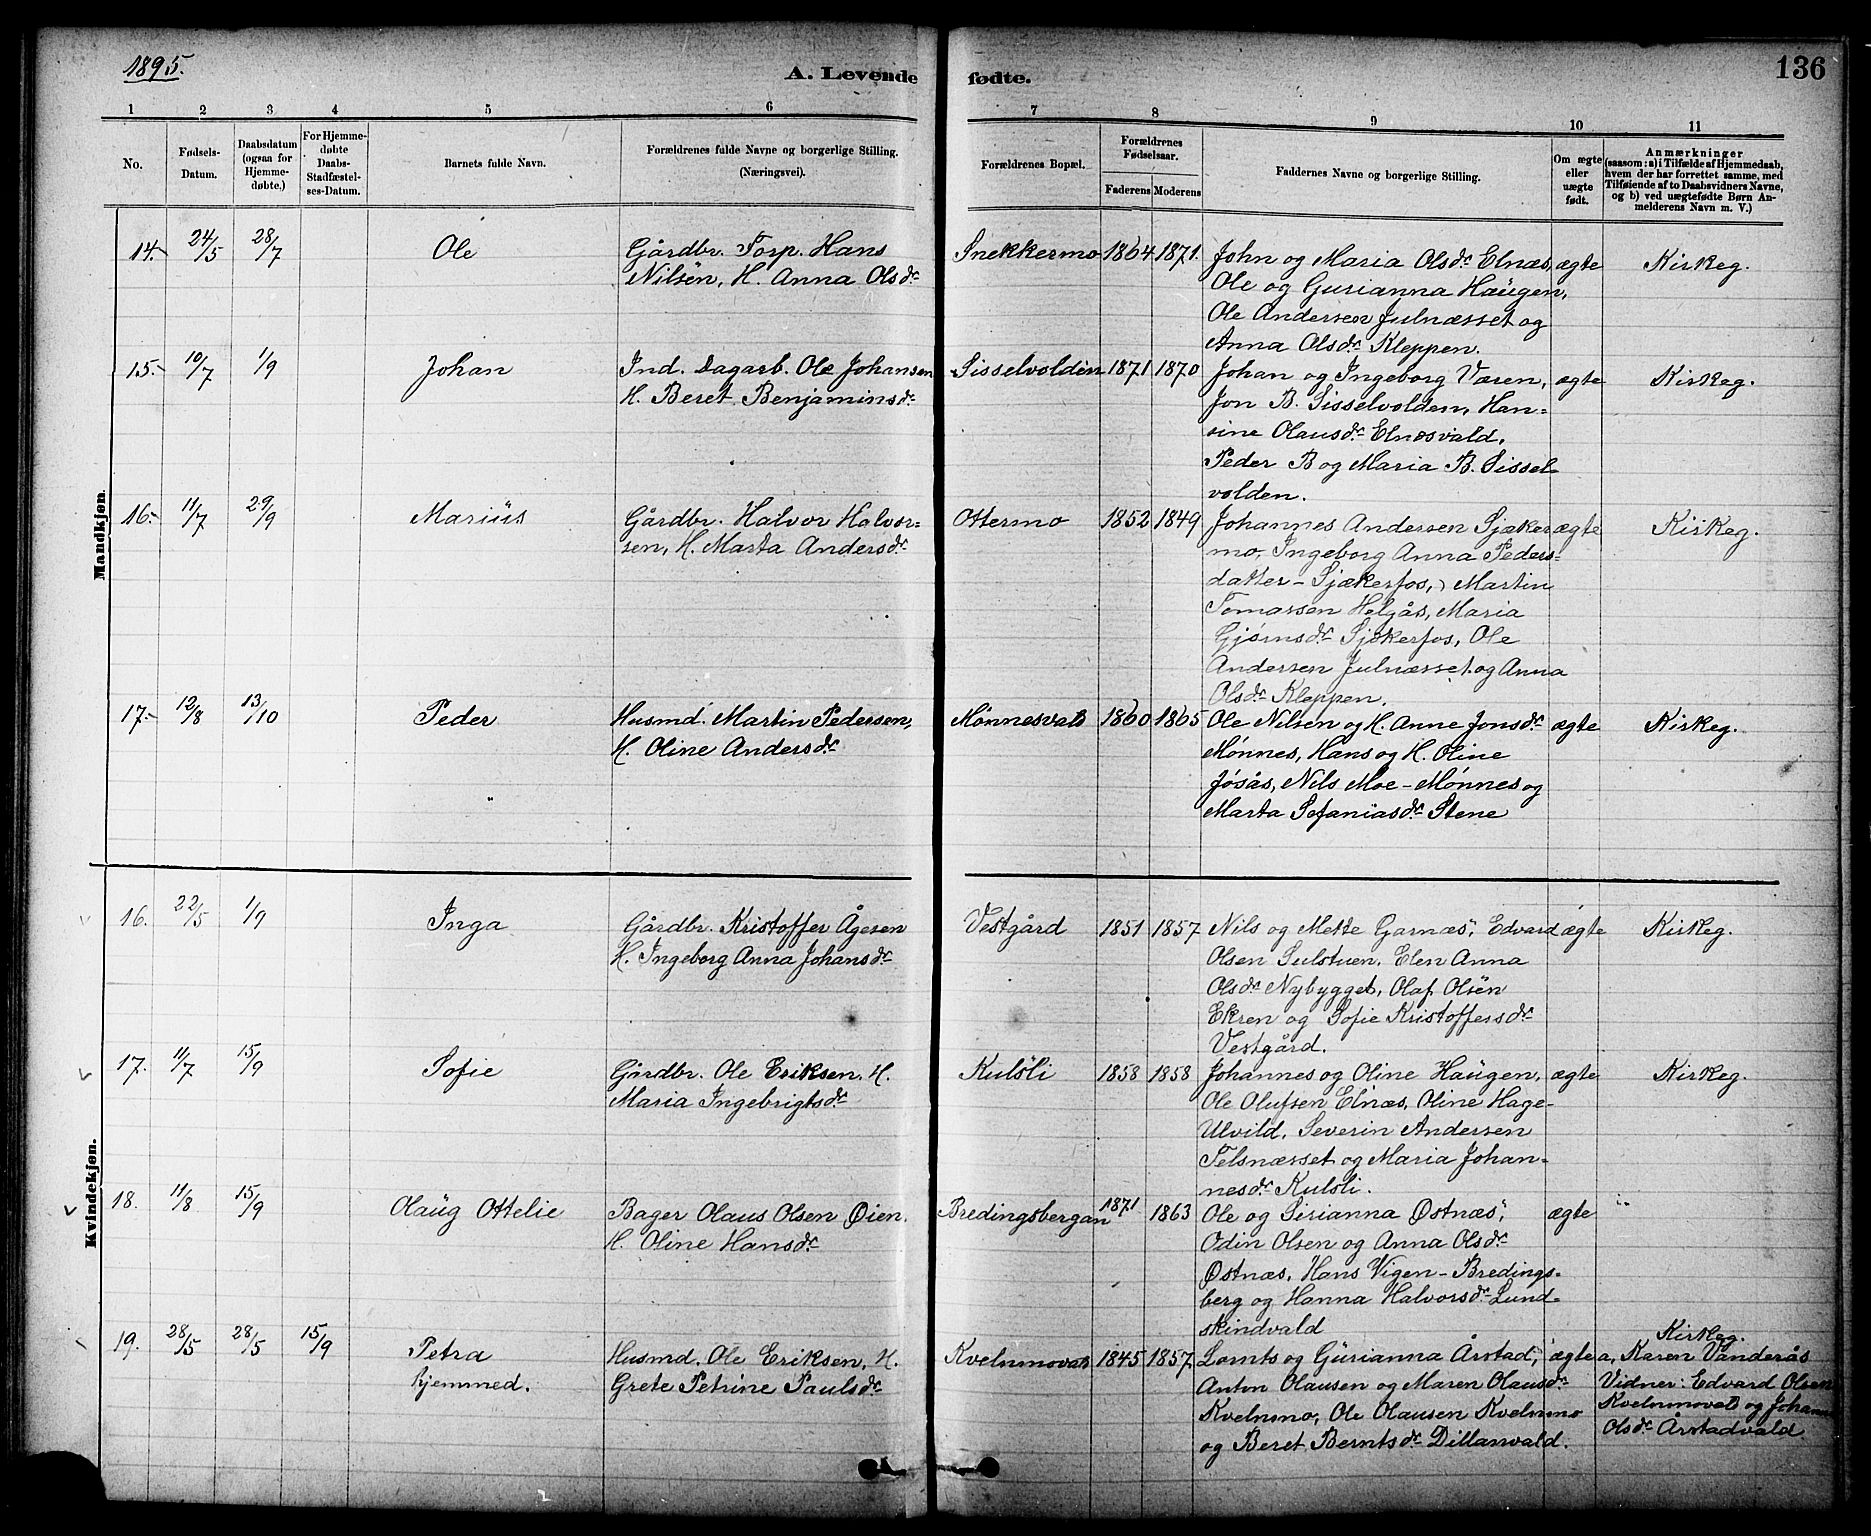 1895.
A. Levende fødte.
136
1 2 3 4 5 6 7 8 9 10 11
No.
Fødsels-
Datum.
Daabsdatum
(ogsaa for
Hjemme-
døbte.)
For Hjemme-
døbte
Daabs-
Stadfæstel-
ses-Datum.
Barnets fulde Navn.
Forældrenes fulde Navne og borgerlige Stilling.
(Næringsvei).
Forældrenes Bopæl.
Forældrenes
Fødselsaar.
Faderens Moderens
Faddernes Navne og borgerlige Stilling.
Om ægte
eller
uægte
født.
Anmærkninger
(saasom: a) i Tilfælde af Hjemmedaab,
hvem der har forrettet samme, med
Tilføiende af to Daabsvidners Navne,
og b) ved uægtefødte Børn An-
melderens Navn m. V.)
Mandkjøn.
14.- 24/5 28/7 Ole
Gårdbr. Torp. Hans
Nilsen, H. Anna Olsdr
Snekkermo 1864 1871.
John og Maria Olsdr Elnæs,
Ole og Gurianna Haugen,
Ole Andersen Julnæsset og
Anna Olsdr Kleppen.
ægte Kirkeg.
15.- 10/7 1/9 Johan
Ind. Dagarb. Ole Johansen
H. Beret Benjaminsdr
Sisselvolden 1871 1870
Johan og Ingeborg Væren,
Jon B. Sisselvolden, Han-
sine Olausdr Elnæsvald,
Peder B og Maria B. Sissel-
volden.
ægte Kirkeg.
16.- 11/7 29/9 Marius
Gårdbr. Halvor Halvor-
sen, H. Marta Andersdr
Ottermo 1852 1849
Johannes Andersen Sjæker-
mo, Ingeborg Anna Peders-
datter - Sjækerfos, Martin
Tomassen Helgås, Maria
Gjørnsdr Sjækerfos, Ole
Andersen Julnæsset og Anna
Olsdr Kleppen.
ægte Kirkeg.
17.- 12/8 13/10 Peder
Husmd. Martin Pedersen,
H. Oline Andersdr
Mønnesvald 1860 1865
Ole Nilsen og H. Anne Jonsdr
Mønnes, Hans og H. Oline
Jøsås, Nils Moe - Mønnes og
Marta Sefaniasdr Stene
ægte Kirkeg.
Kvindekjøn.
16. 22/5 1/9 Inga
Gårdbr. Kristoffer Ågesen
H. Ingeborg Anna Johansdr
Vestgård 1851 1857
Nils og Mette Garnæs, Edvard
Olsen Sulstuen, Elen Anna
Olsdr Nybygget, Olaf Olsen
Ekren og Sofie Kristoffersdr
Vestgård.
ægte Kirkeg.
17. 11/7 15/9 Sofie
Gårdbr. Ole Eriksen, H.
Maria Ingebrigtsdr
Kulsli 1858 1858
Johannes og Oline Haugen,
Ole Olufsen Elnæs, Oline Hage-
Ulvild, Severin Andersen
Telsnæsset og Maria Johan-
nesdr Kulsli.
ægte Kirkeg.
18. 11/8 15/9 Olaug Ottelie
Bager Olaus Olsen Øien,
H. Oline Hansdr
Bredingsbergan 1871 1863
Ole og Sirianna Østnæs,
Odin Olsen og Anna Olsdr
Østnæs, Hans Vigen - Bredings-
berg og Hanna Halvorsdr Lund-
skindvald
ægte "
19. 28/5 28/5 15/9 Petra
hjemmed.
Husmd. Ole Eriksen, H.
Grete Petrine Paulsdr
Kvelnmovald 1845 1857
Lornts og Gurianna Årstad,
Anton Olausen og Maren Olausdr
Kvelnmo, Ole Olausen Kvelnmo
og Beret Berntsdr Dillanvald.
ægte
Kirkeg.
a, Karen Vanderås
Vidner: Edvard Olsen
Kvelnmovald og Johanna
Olsdr Årstadvald.